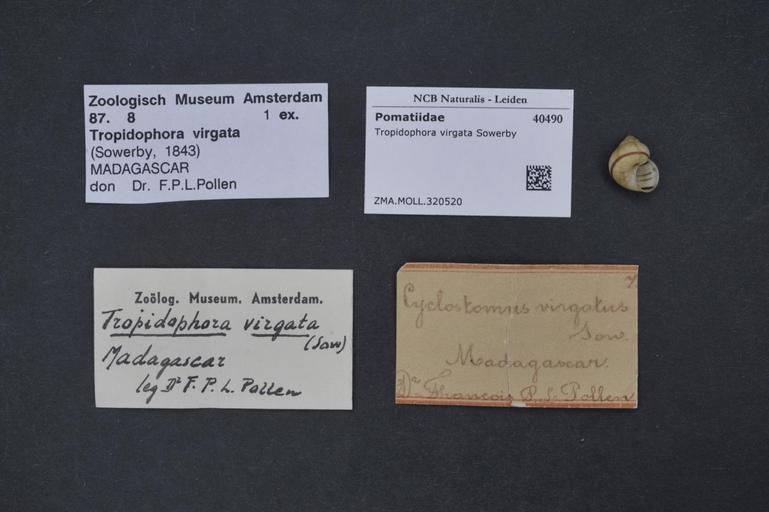 Zoologisch Museum Amsterdam
87. 8 1 ex.
Tropidophora virgata
(Sowerby, 1843)
MADAGASCAR
don Dr. F.P.L.Pollen
NCB Naturalis - Leiden
Pomatiidae 40490
Tropidophora virgata Sowerby
ZMA.MOLL.320520
Zoölog. Museum. Amsterdam.
Tropidophora virgata
(Sow)
Madagascar
leg Dr F. P. L. Pollen
Cyclostomus virgatus
Sow.
Madagascar.
Dr François P. L. Pollen